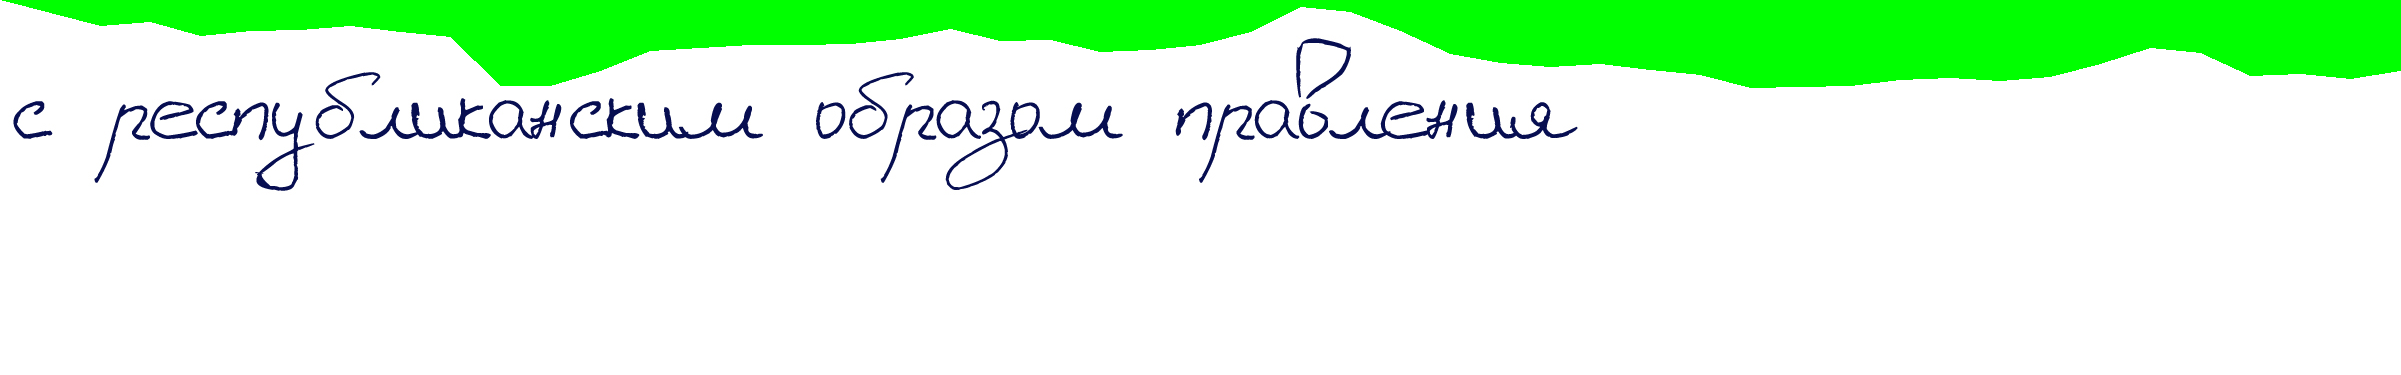 с республиканским образом правления